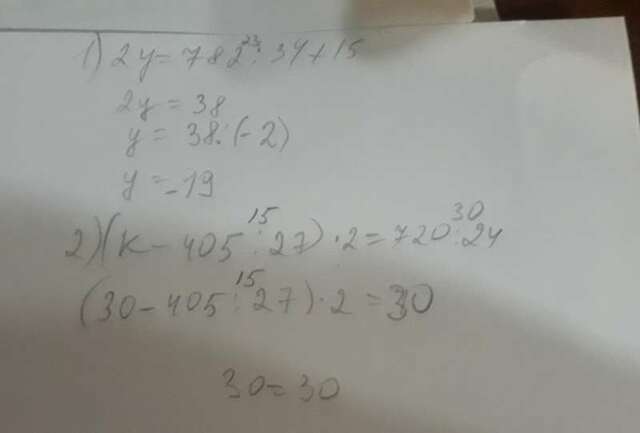 1) 2y = 782 : 34 + 15
23
2y = 38
y = 38 : (-2)
y = -19
15 30
2) (k - 405 : 27) · 2 = 720 : 24
15
(30 - 405 : 27) · 2 = 30
30 = 30